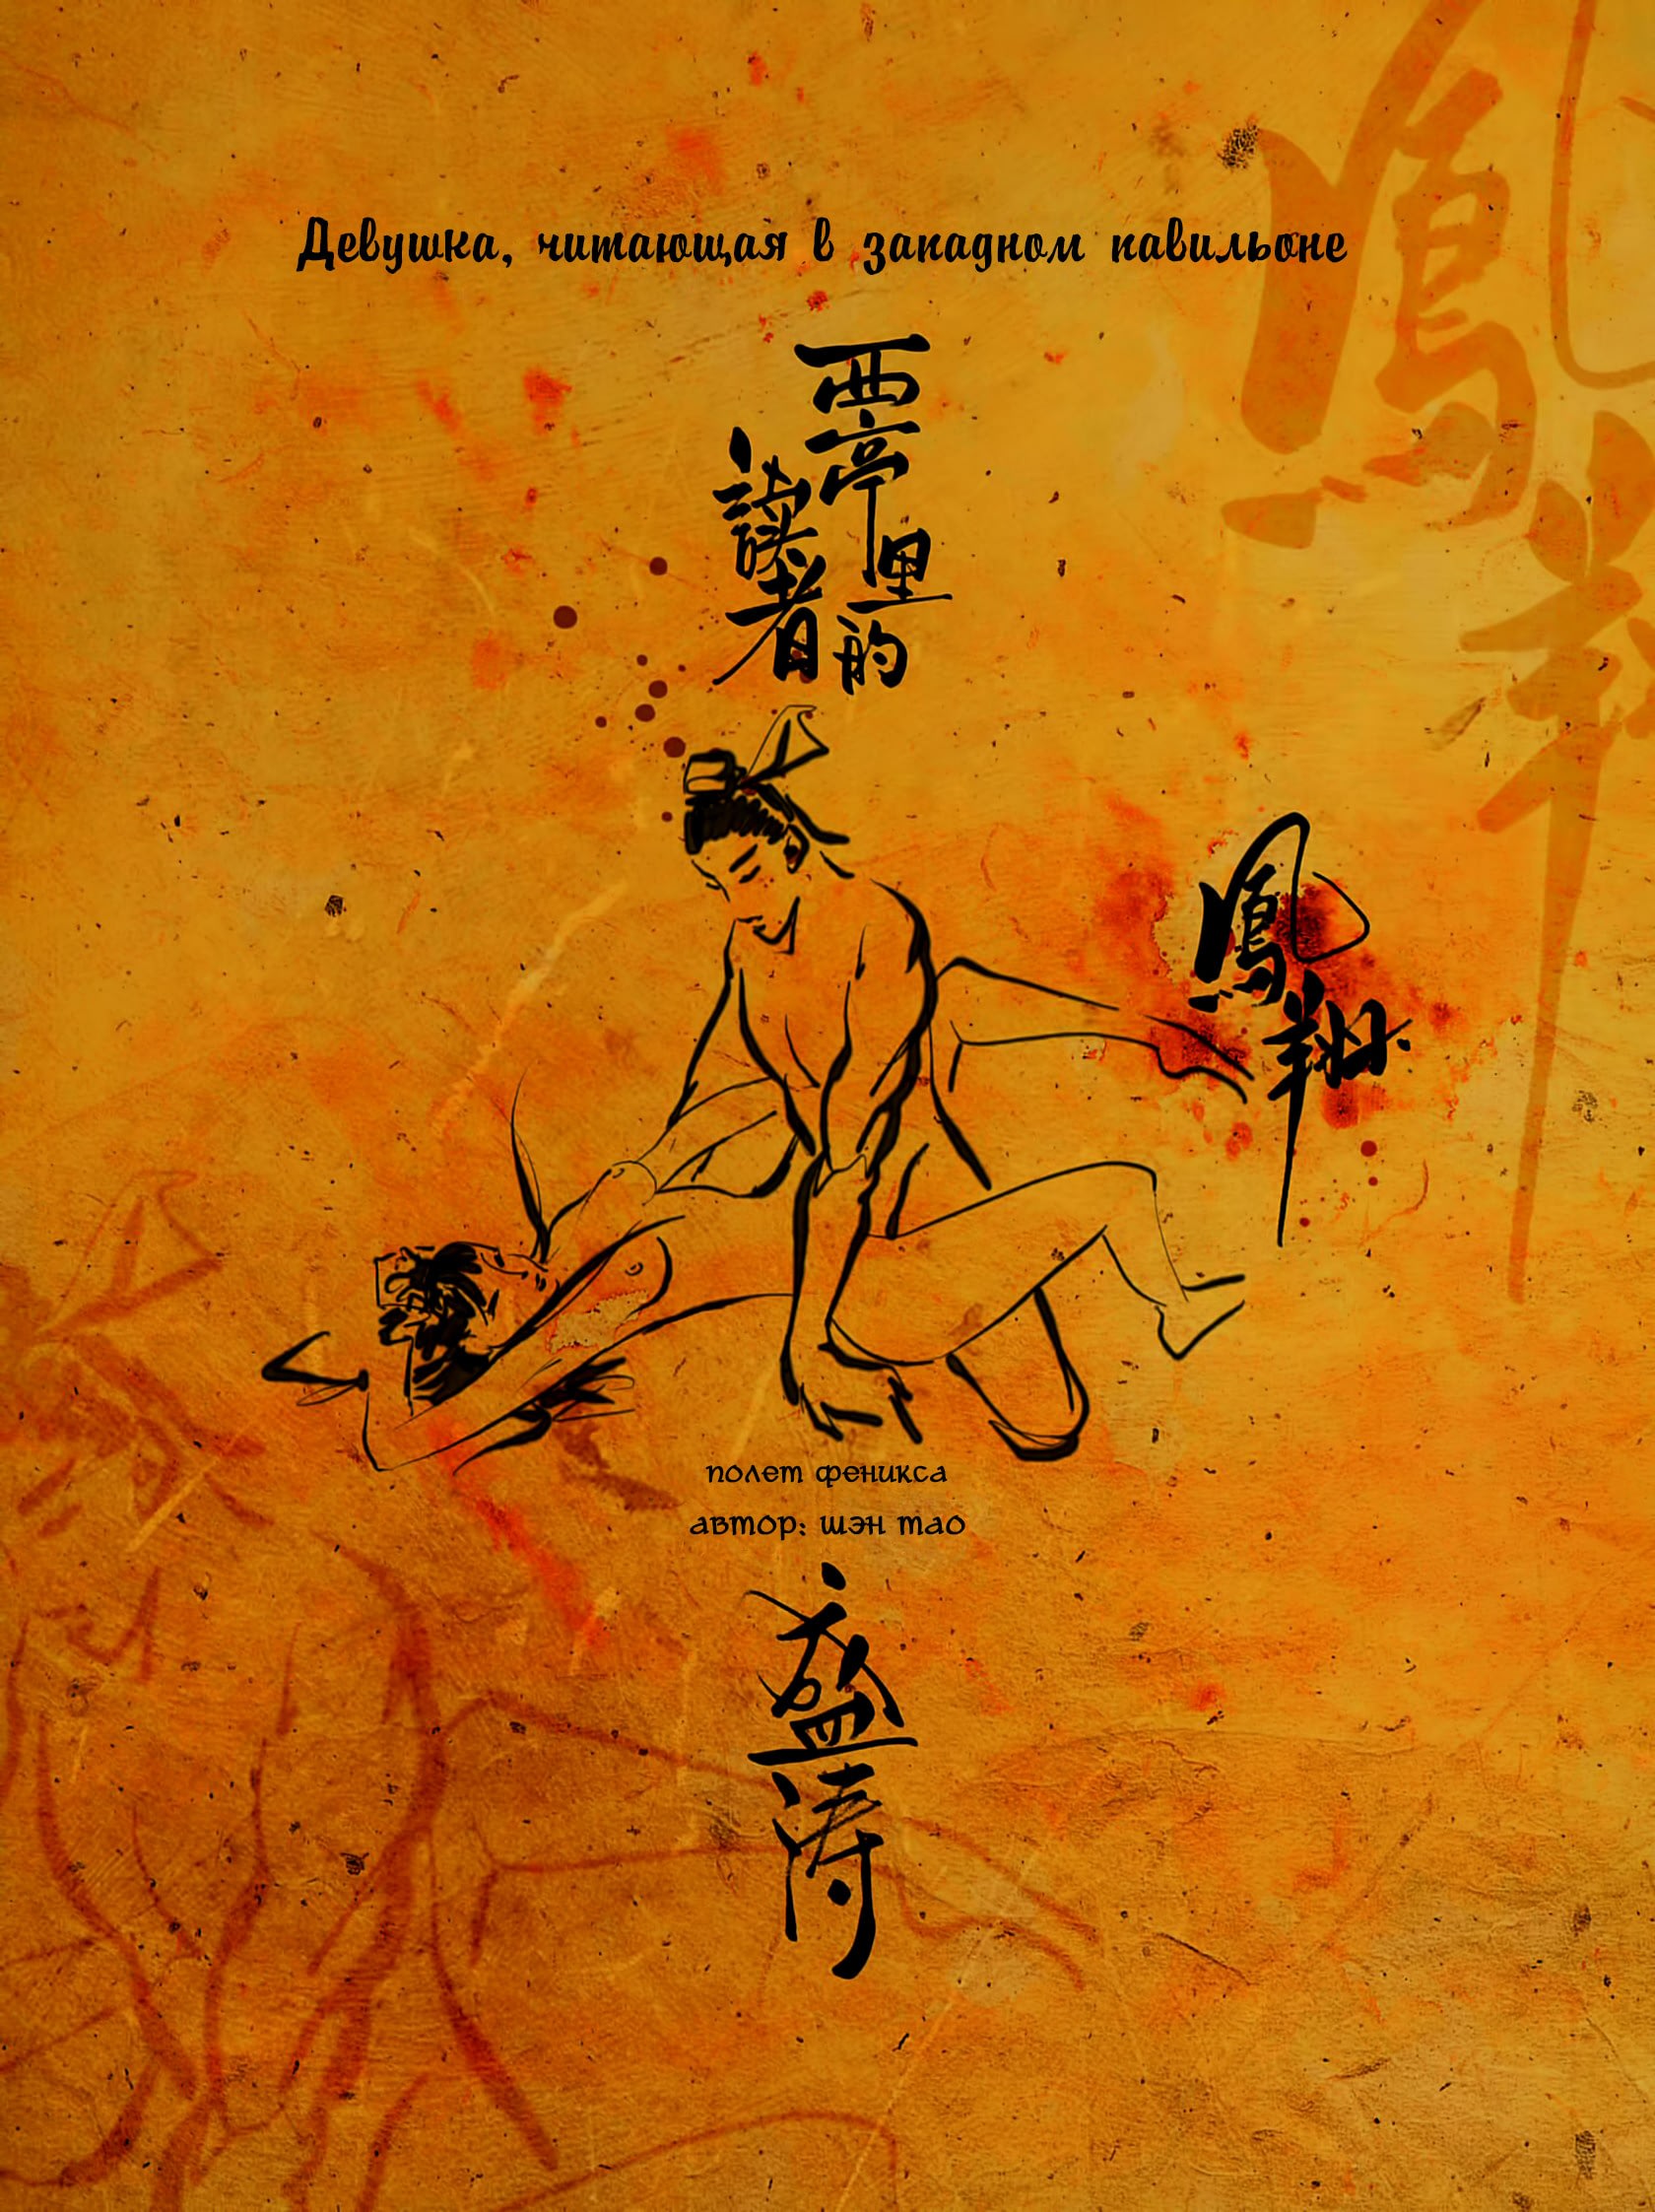 Девушка, читающая в западном павильоне
西亭里的
讀者
鳳翔
полет феникса
автор: шэн тао
盛涛
鳳翔